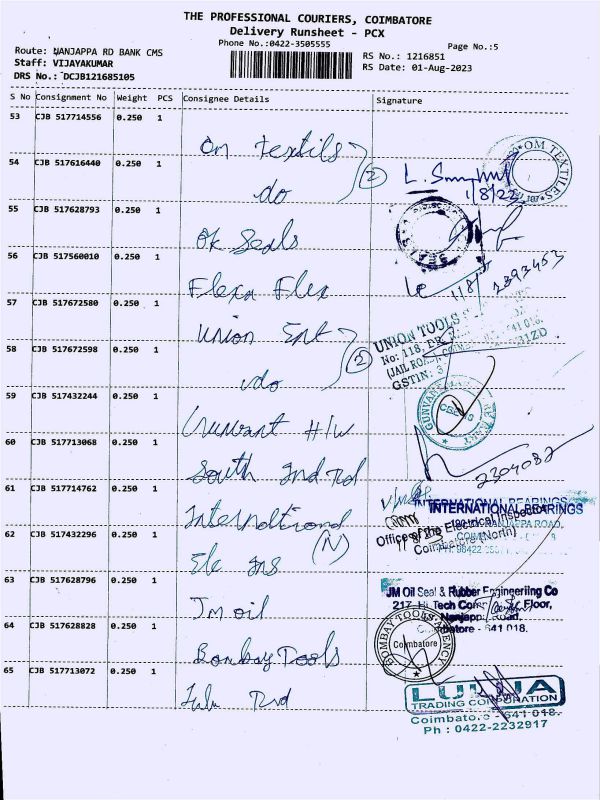 THE PROFESSIONAL COURIERS, COIMBATORE
Delivery Runsheet - PCX
Phone No.:0422-3505555
Page No.:5
Route: NANJAPPA RD BANK CMS
Staff: VIJAYAKUMAR
DRS No.: DCJB121685105
RS No.: 1216851
RS Date: 01-Aug-2023
S No Consignment No Weight PCS Consignee Details Signature
53 CJB 517714556 0.250 1 Om textils
54 CJB 517616440 0.250 1 do (2)
1/8/23
OM TEXTILES
55 CJB 517628793 0.250 1 Ok Seals
56 CJB 517560010 0.250 1 Flexa Flex
1/8/
2393453
57 CJB 517672580 0.250 1 Union Ent
58 CJB 517672598 0.250 1 do (2)
UNION TOOLS
No: 118, DR.
(JAIL ROAD)
GSTIN: 3
59 CJB 517432244 0.250 1 Gunvant H/W
60 CJB 517713068 0.250 1 South Ind Rd
2304082
61 CJB 517714762 0.250 1 International
INTERNATIONAL BEARINGS
NANJAPPA ROAD,
62 CJB 517432296 0.250 1 Ele Ins (N)
Office of the Electrical Inspector
Coimbatore (North)
63 CJB 517628796 0.250 1 Jm oil
JM Oil Seal & Rubber Engineeriing Co
217, Hi Tech Floor,
Nanjappa Road,
641 018.
64 CJB 517628828 0.250 1 Bombay Tools
BOMBAY TOOLS AGENCY
Coimbatore
65 CJB 517713072 0.250 1
TRADING CORPORATION
Coimbatore - 641 018.
Ph : 0422-2232917